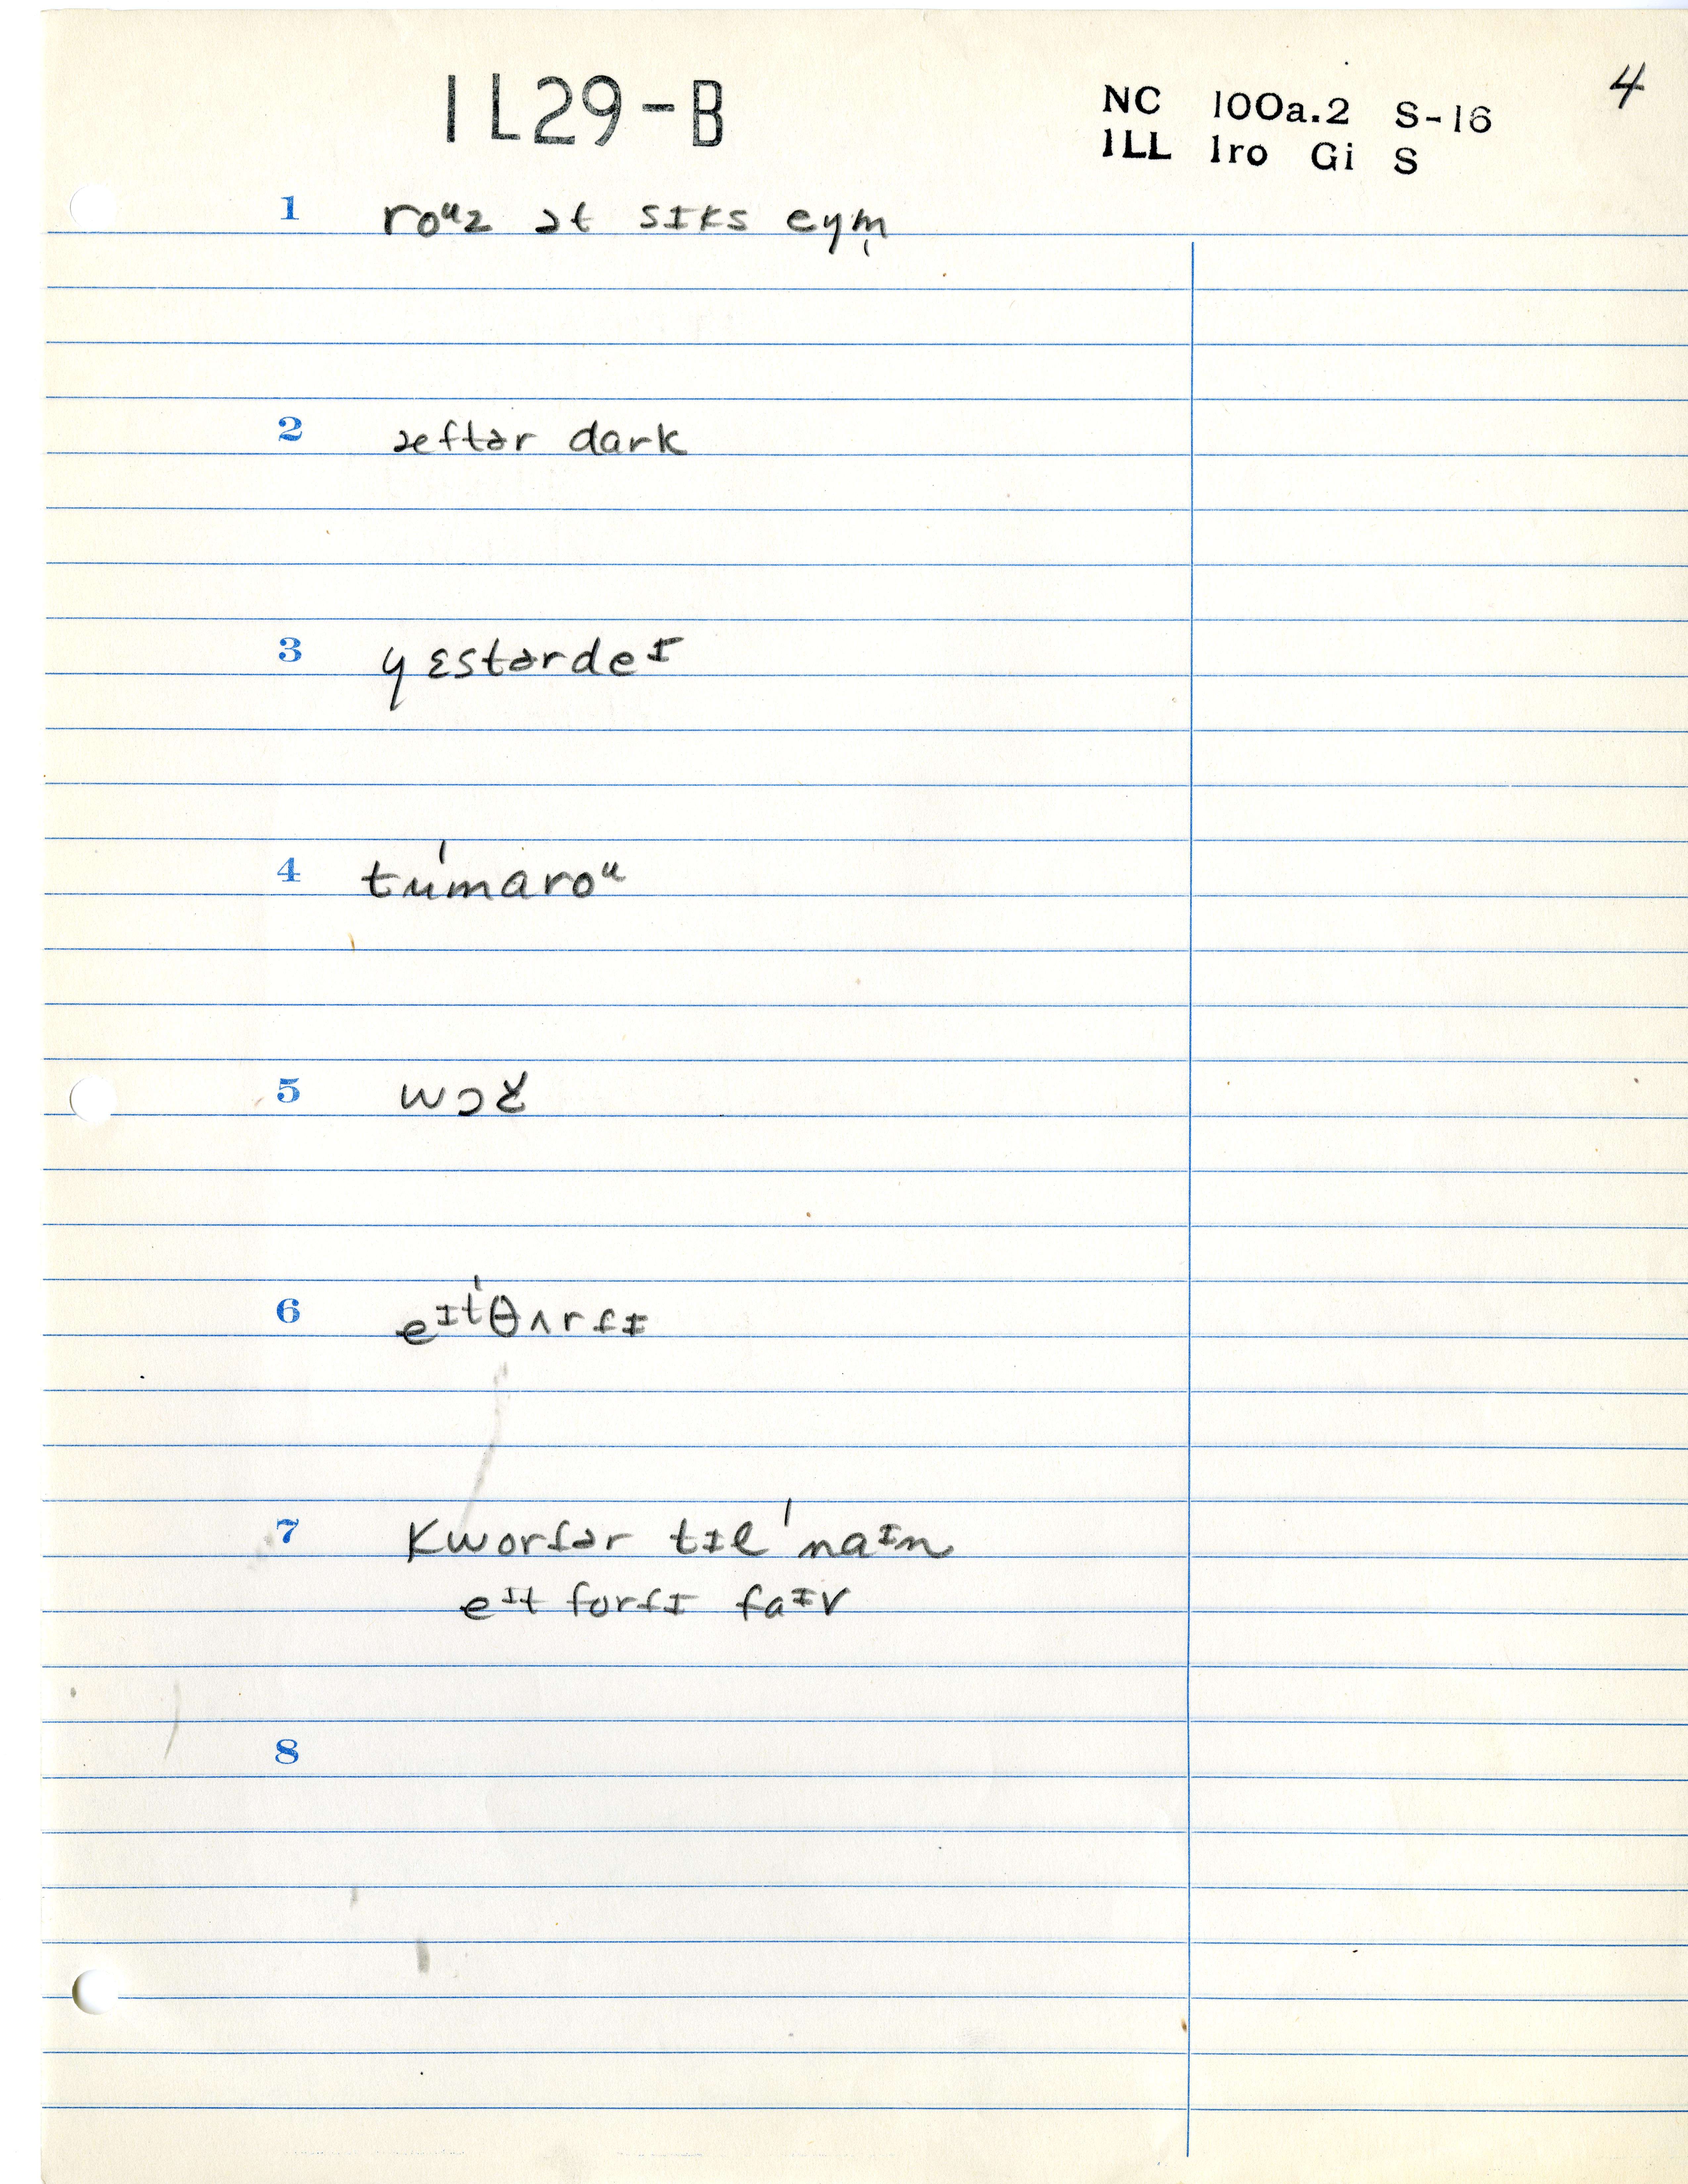 IL29-B
NC 100a.2 S-16 4
ILL Iro Gi S
1 roᵘz ət sɪks eym̩
2 æftər dark
3 yɛstərdeᴵ
4 tu'maroᵘ
5 wɔɚ
6 eᴵt'θʌrɾɪ
7 kworɾər tɪl 'naᴵn
eᴵt forɾɪ faᴵv
8